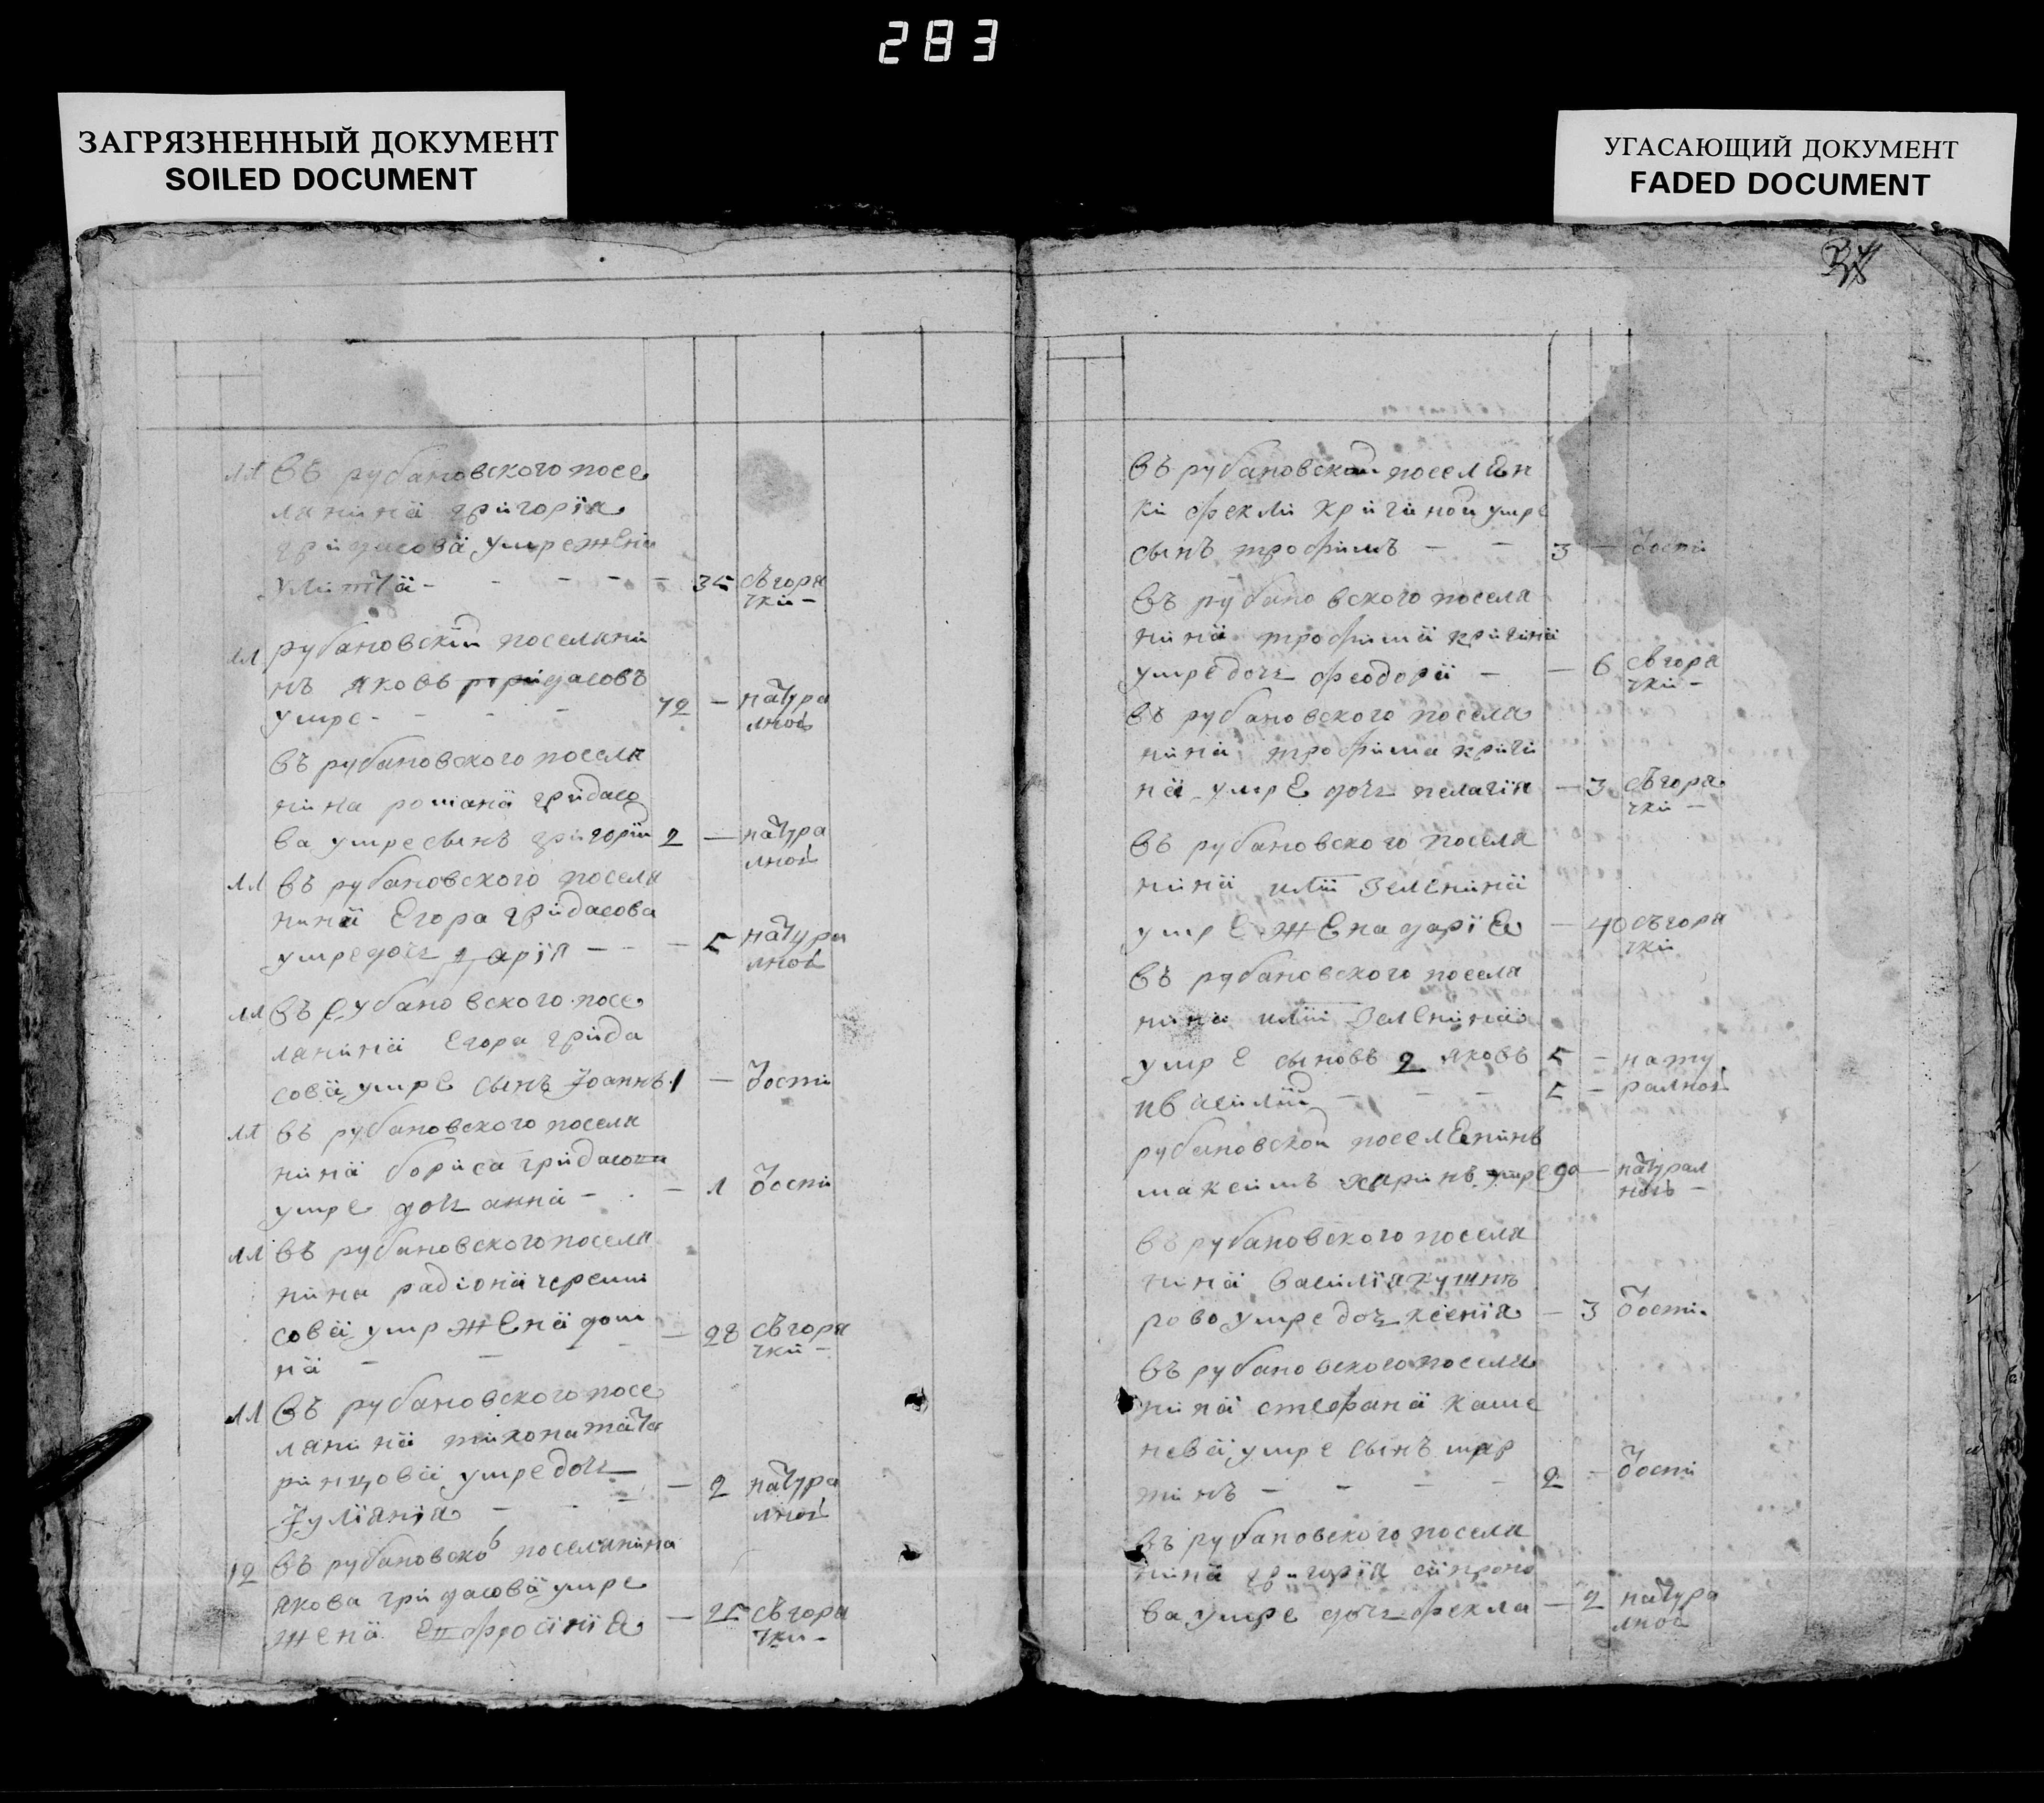 283
ЗАГРЯЗНЕННЫЙ ДОКУМЕНТ
SOILED DOCUMENT
УГАСАЮЩИЙ ДОКУМЕНТ
FADED DOCUMENT
въ рубановского посе
лянина григорія
гридасова умре жена
улита - - - - - 35 съгоря
чки -
рубановский поселяни
нъ яковъ гридасовъ
умре - - - - 72 - натура
лной
въ рубановского поселя
нина романа гридасо
ва умре сынъ григорий 2 - натура
лной
въ рубановского поселя
нина Егора гридасова
умре дочь дарія - - - 5 натура
лной
въ рубановского посе
лянина Егора грида
сова умре сынъ Іоаннъ 1 - воспи
въ рубановского поселя
нина бориса гридасова
умре дочь анна - - - 1 воспи
въ рубановского поселя
нина радіона череми
сова умр жена дом - 28 съгоря
чки -
на - - - -
въ рубановского посе
лянина тихона
умре дочь - 2 натура
лной
Іуліанія - - -
12 въ рубановско поселянина
якова гридасова умре
жена Ефросінія - 25 съгоря
чки -
въ рубановской поселен
ки феклы кричиной умре
сынъ трофимъ - - 3 - воспи
въ рубановского поселя
нина трофима кричина
умре дочь феодора - - 6 съгоря
чки -
въ рубановского поселя
нина трофима кричи
на умре дочь пелагія - 3 съгоря
чки -
въ рубановского поселя
нина иліи Зеленина
умре жена даріе - 40 съгоря
чки
въ рубановского поселя
нина иліи Зеленина
умре сыновъ 2 яковъ 5 - нату
ивасилий - - - 5 - ралной
рубановской поселенинъ
максимъ харинъ умре 90 - натурал
ной -
въ рубановского поселя
нина василія кушни
рово умре дочь ксенія - 3 воспи
въ рубановского поселя
нина стефана каме
нева умре сынъ мар
тинъ - - - - 2 - воспи
въ рубановского поселя
нина григорія сапроно
ва умре дочь фекла - 2 натура
лной